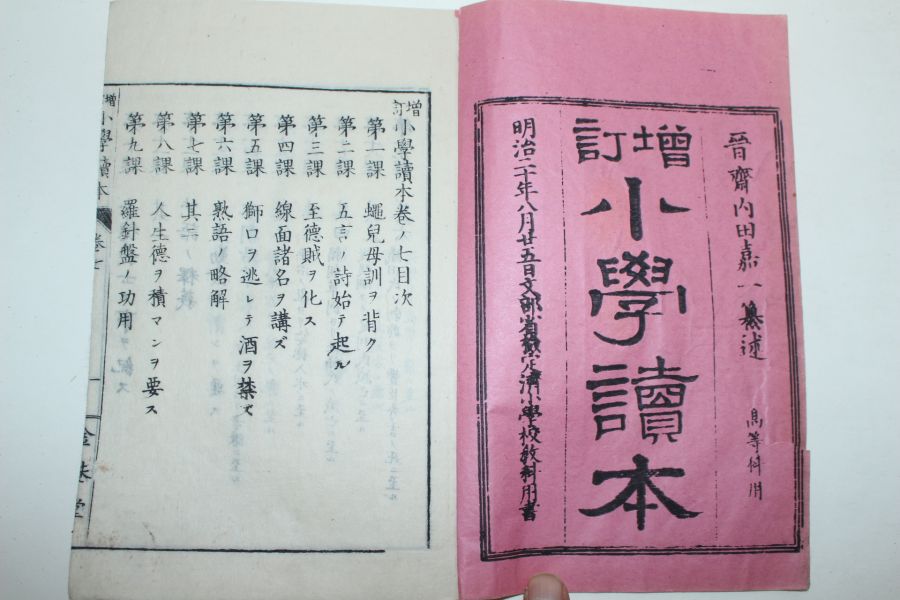 晉齋内田嘉一纂述
高等科用
增訂
小學讀本
明治二十年八月廿五日文部省檢定濟小學校敎科用書
增訂小學讀本卷ノ七目次
第一課 蠅兒母訓ヲ背ク
第二課 五言ノ詩始テ起ル
第三課 至德賊ヲ化ス
第四課 線面諸名ヲ講ズ
第五課 獅口ヲ逃レテ酒ヲ禁ズ
第六課 熟語ノ略解
第七課 其二
第八課 人生德ヲ積マンヲ要ス
第九課 羅針盤ノ功用
增訂小學讀本 卷七